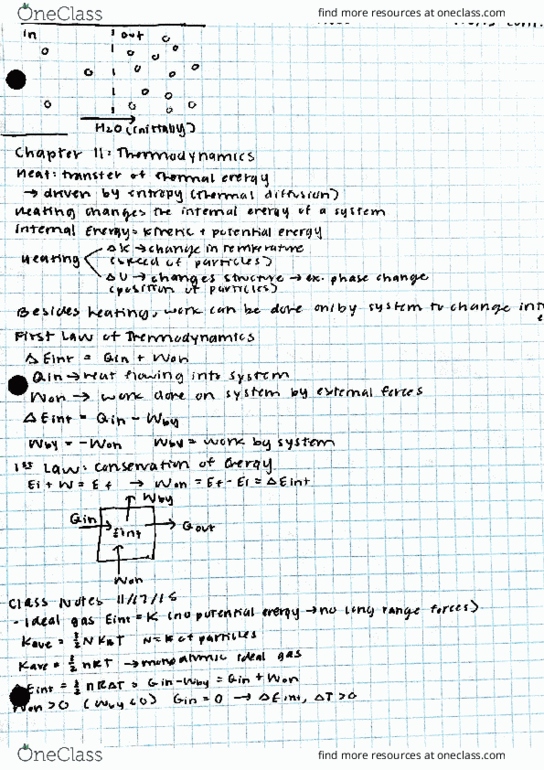 OneClass
find more resources at oneclass.com
in out
H2O (initially)
Chapter 11: Thermodynamics
Heat: transfer of thermal energy
→ driven by entropy (thermal diffusion)
Heating changes the internal energy of a system
Internal Energy = kinetic + potential energy
Heating
ΔK → change in temperature
(speed of particles)
ΔU → changes structure → ex. phase change
(position of particles)
Besides heating, work can be done on/by system to change int
First Law of Thermodynamics
ΔEint = Qin + Won
Qin → heat flowing into system
Won → work done on system by external forces
ΔEint = Qin - Wby
Wby = -Won Wby = work by system
1st Law: conservation of Energy
Ei + W = Ef → Won = Ef - Ei = ΔEint
Wby
Qin Eint Qout
Won
Class Notes 11/17/15
- Ideal gas Eint = K (no potential energy → no long range forces)
Kave = 3/2 N KBT N = # of particles
Kave = 3/2 nRT → monoatomic ideal gas
Eint = 3/2 nRΔT = Qin - Wby = Qin + Won
Won > 0 (Wby < 0) Qin = 0 → ΔEint, ΔT > 0
OneClass
find more resources at oneclass.com